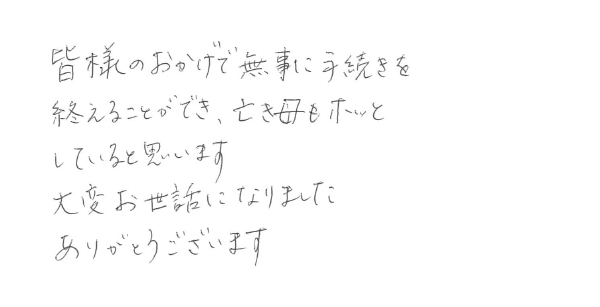 皆様のおかげで無事に手続きを
終えることができ、亡き母もホッと
していると思います
大変お世話になりました
ありがとうございます